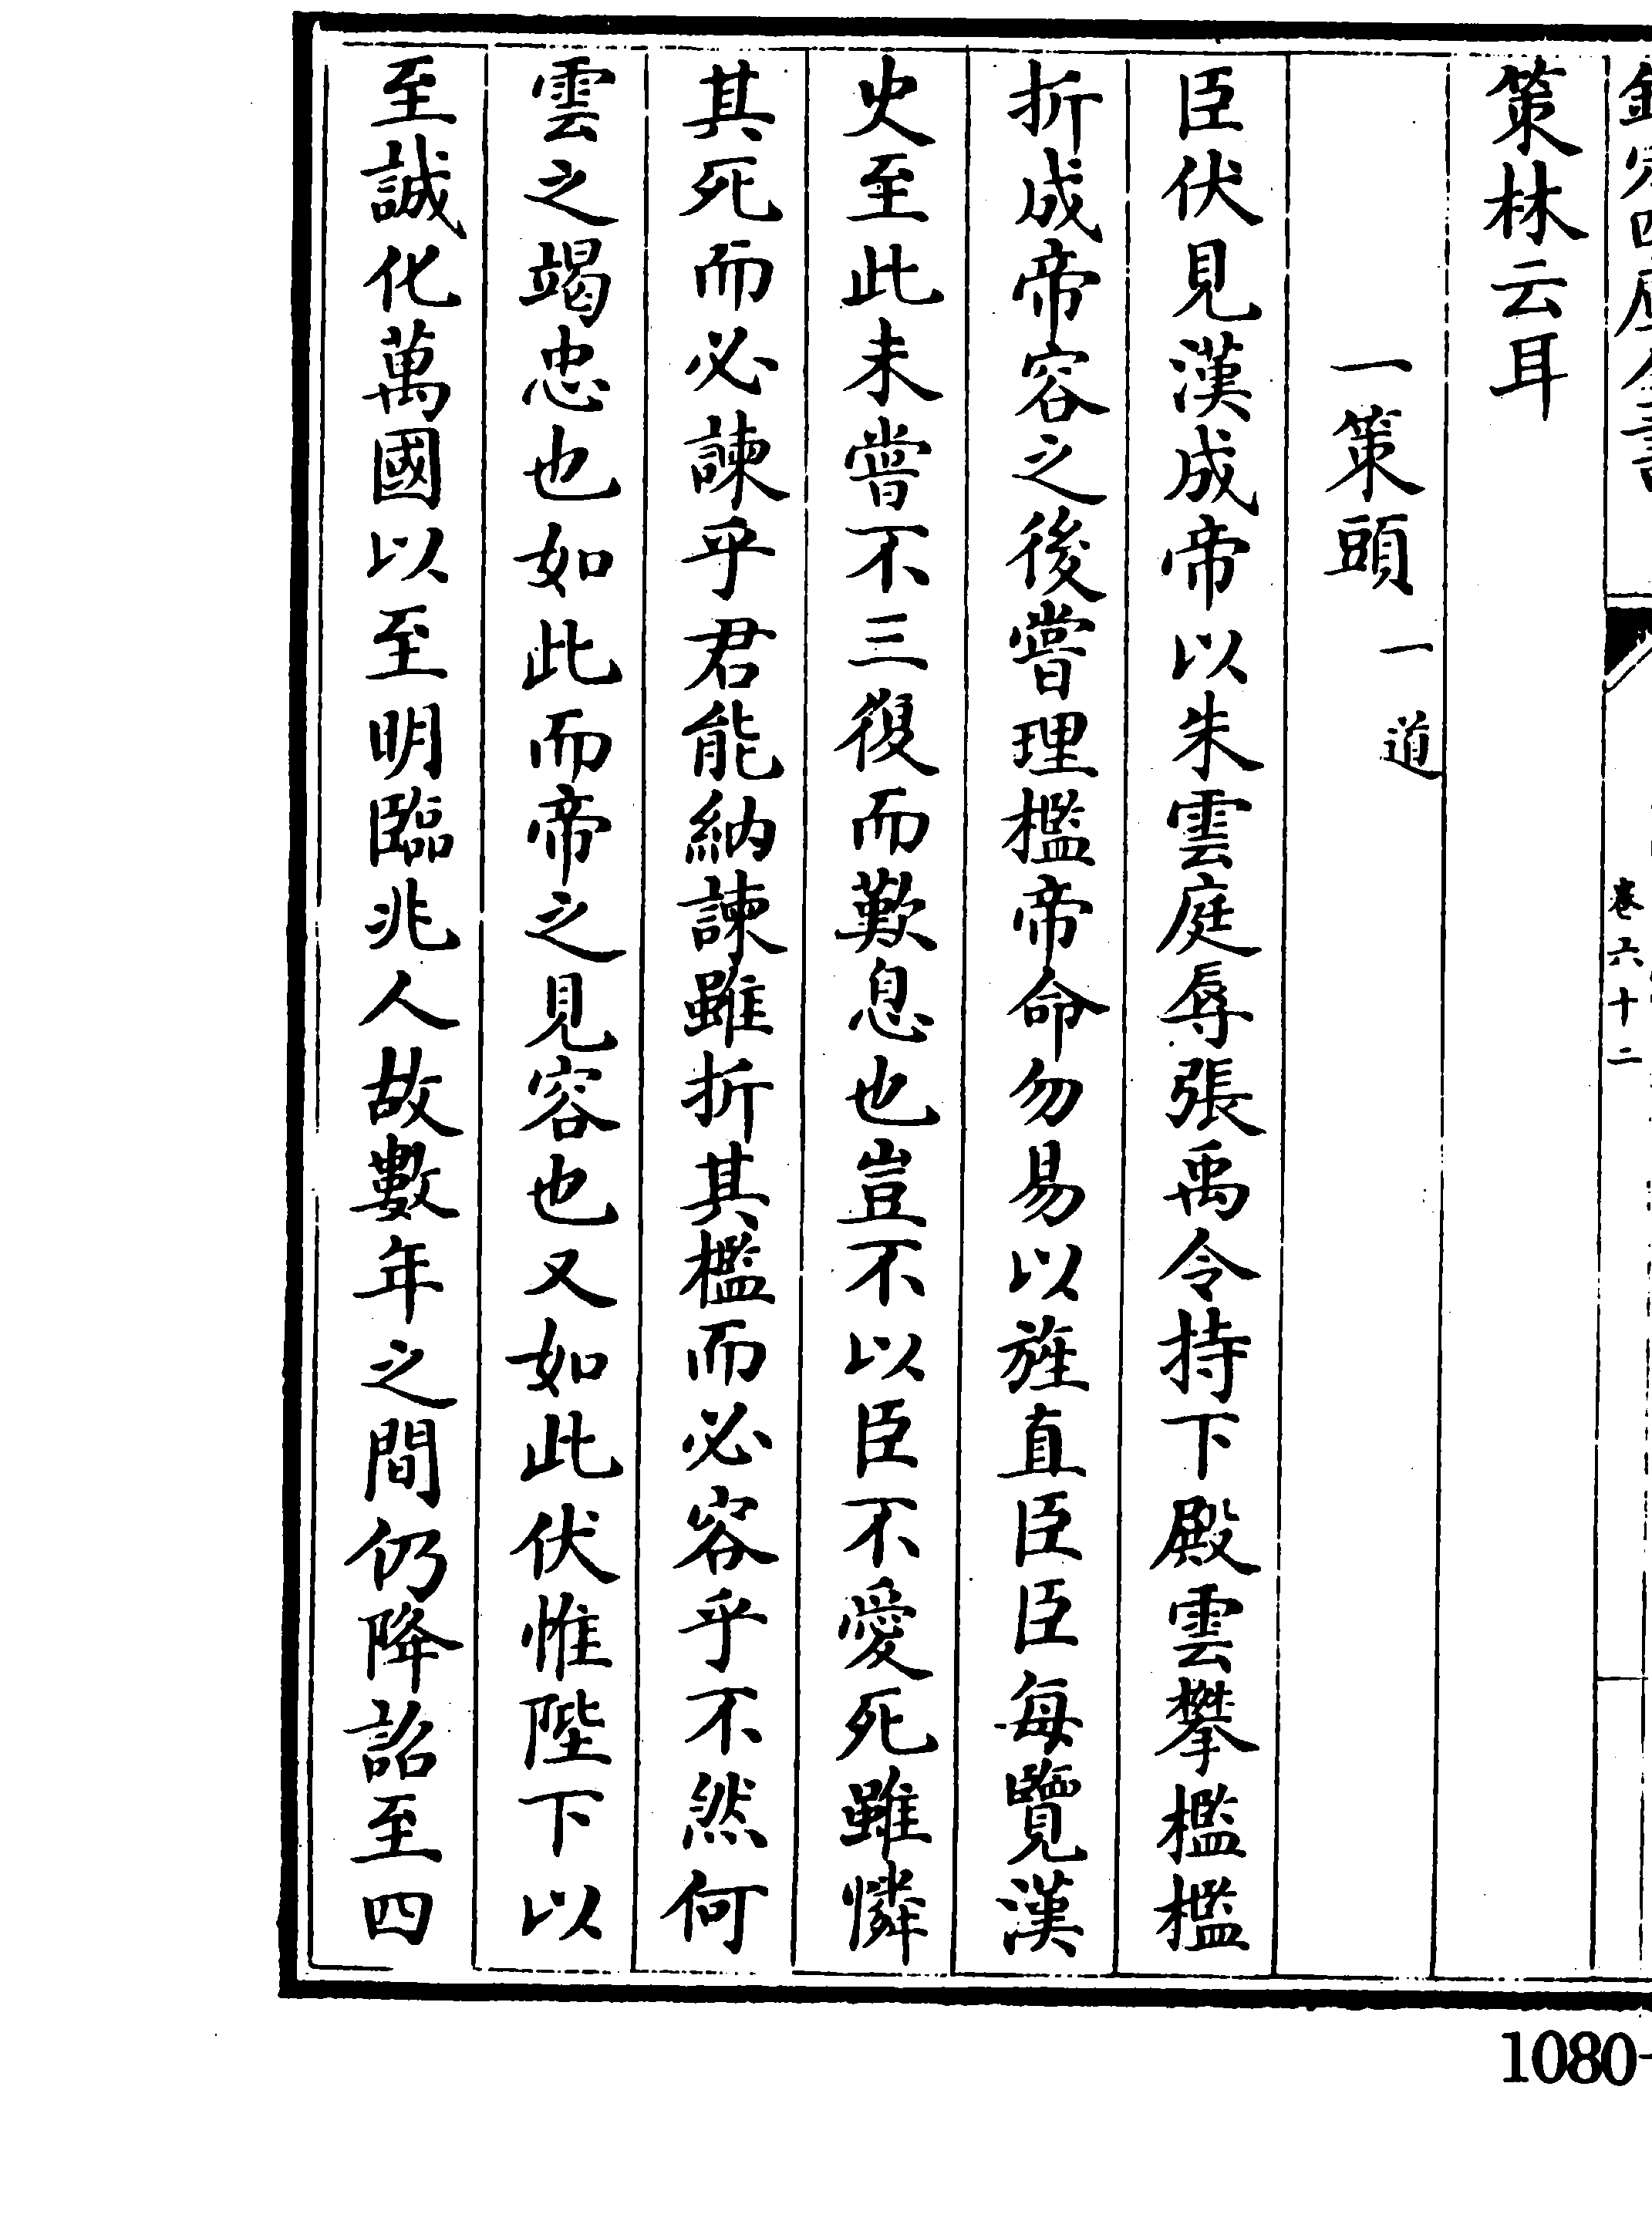 欽定四庫全書
卷六十二
策林云耳
一策頭一道
臣伏見漢成帝以朱雲庭辱張禹令持下殿雲攀檻檻
折成帝容之後嘗理檻帝命勿易以旌直臣臣每覽漢
史至此未嘗不三復而歎息也豈不以臣不愛死雖憐
其死而必諫乎君能納諫雖折其檻而必容乎不然何
雲之竭忠也如此而帝之見容也又如此伏惟陛下以
至誠化萬國以至明臨兆人故數年之間仍降詔至四
1080-